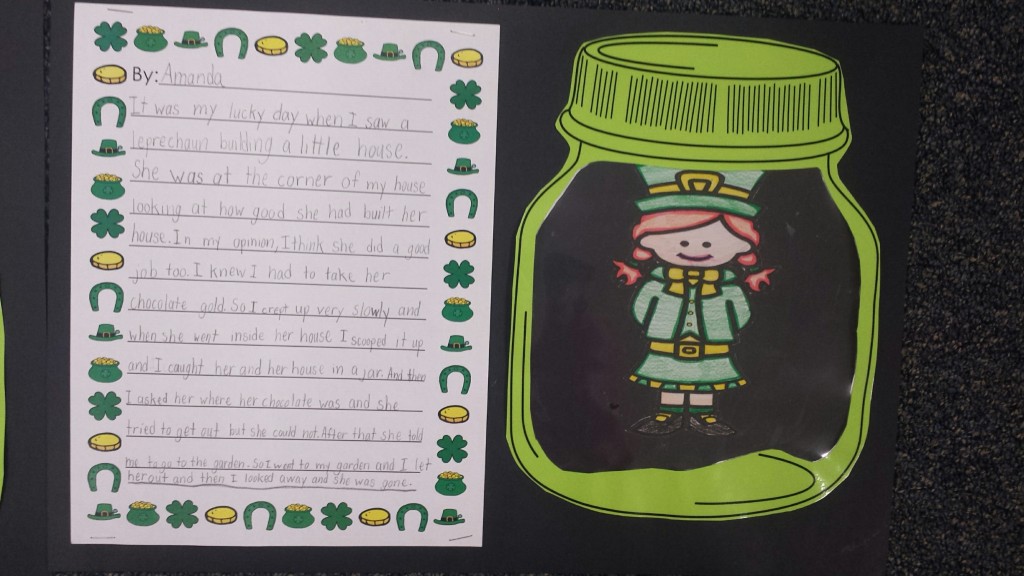 By: Amanda
It was my lucky day when I saw a
leprechaun building a little house.
She was at the corner of my house
looking at how good she had built her
house. In my opinion, I think she did a good
job too. I knew I had to take her
chocolate gold. So I crept up very slowly and
when she went inside her house I scooped it up
and I caught her and her house in a jar. And then
I asked her where her chocolate was and she
tried to get out but she could not. After that she told
me to go to the garden. So I went to my garden and I let
her out and then I looked away and she was gone.